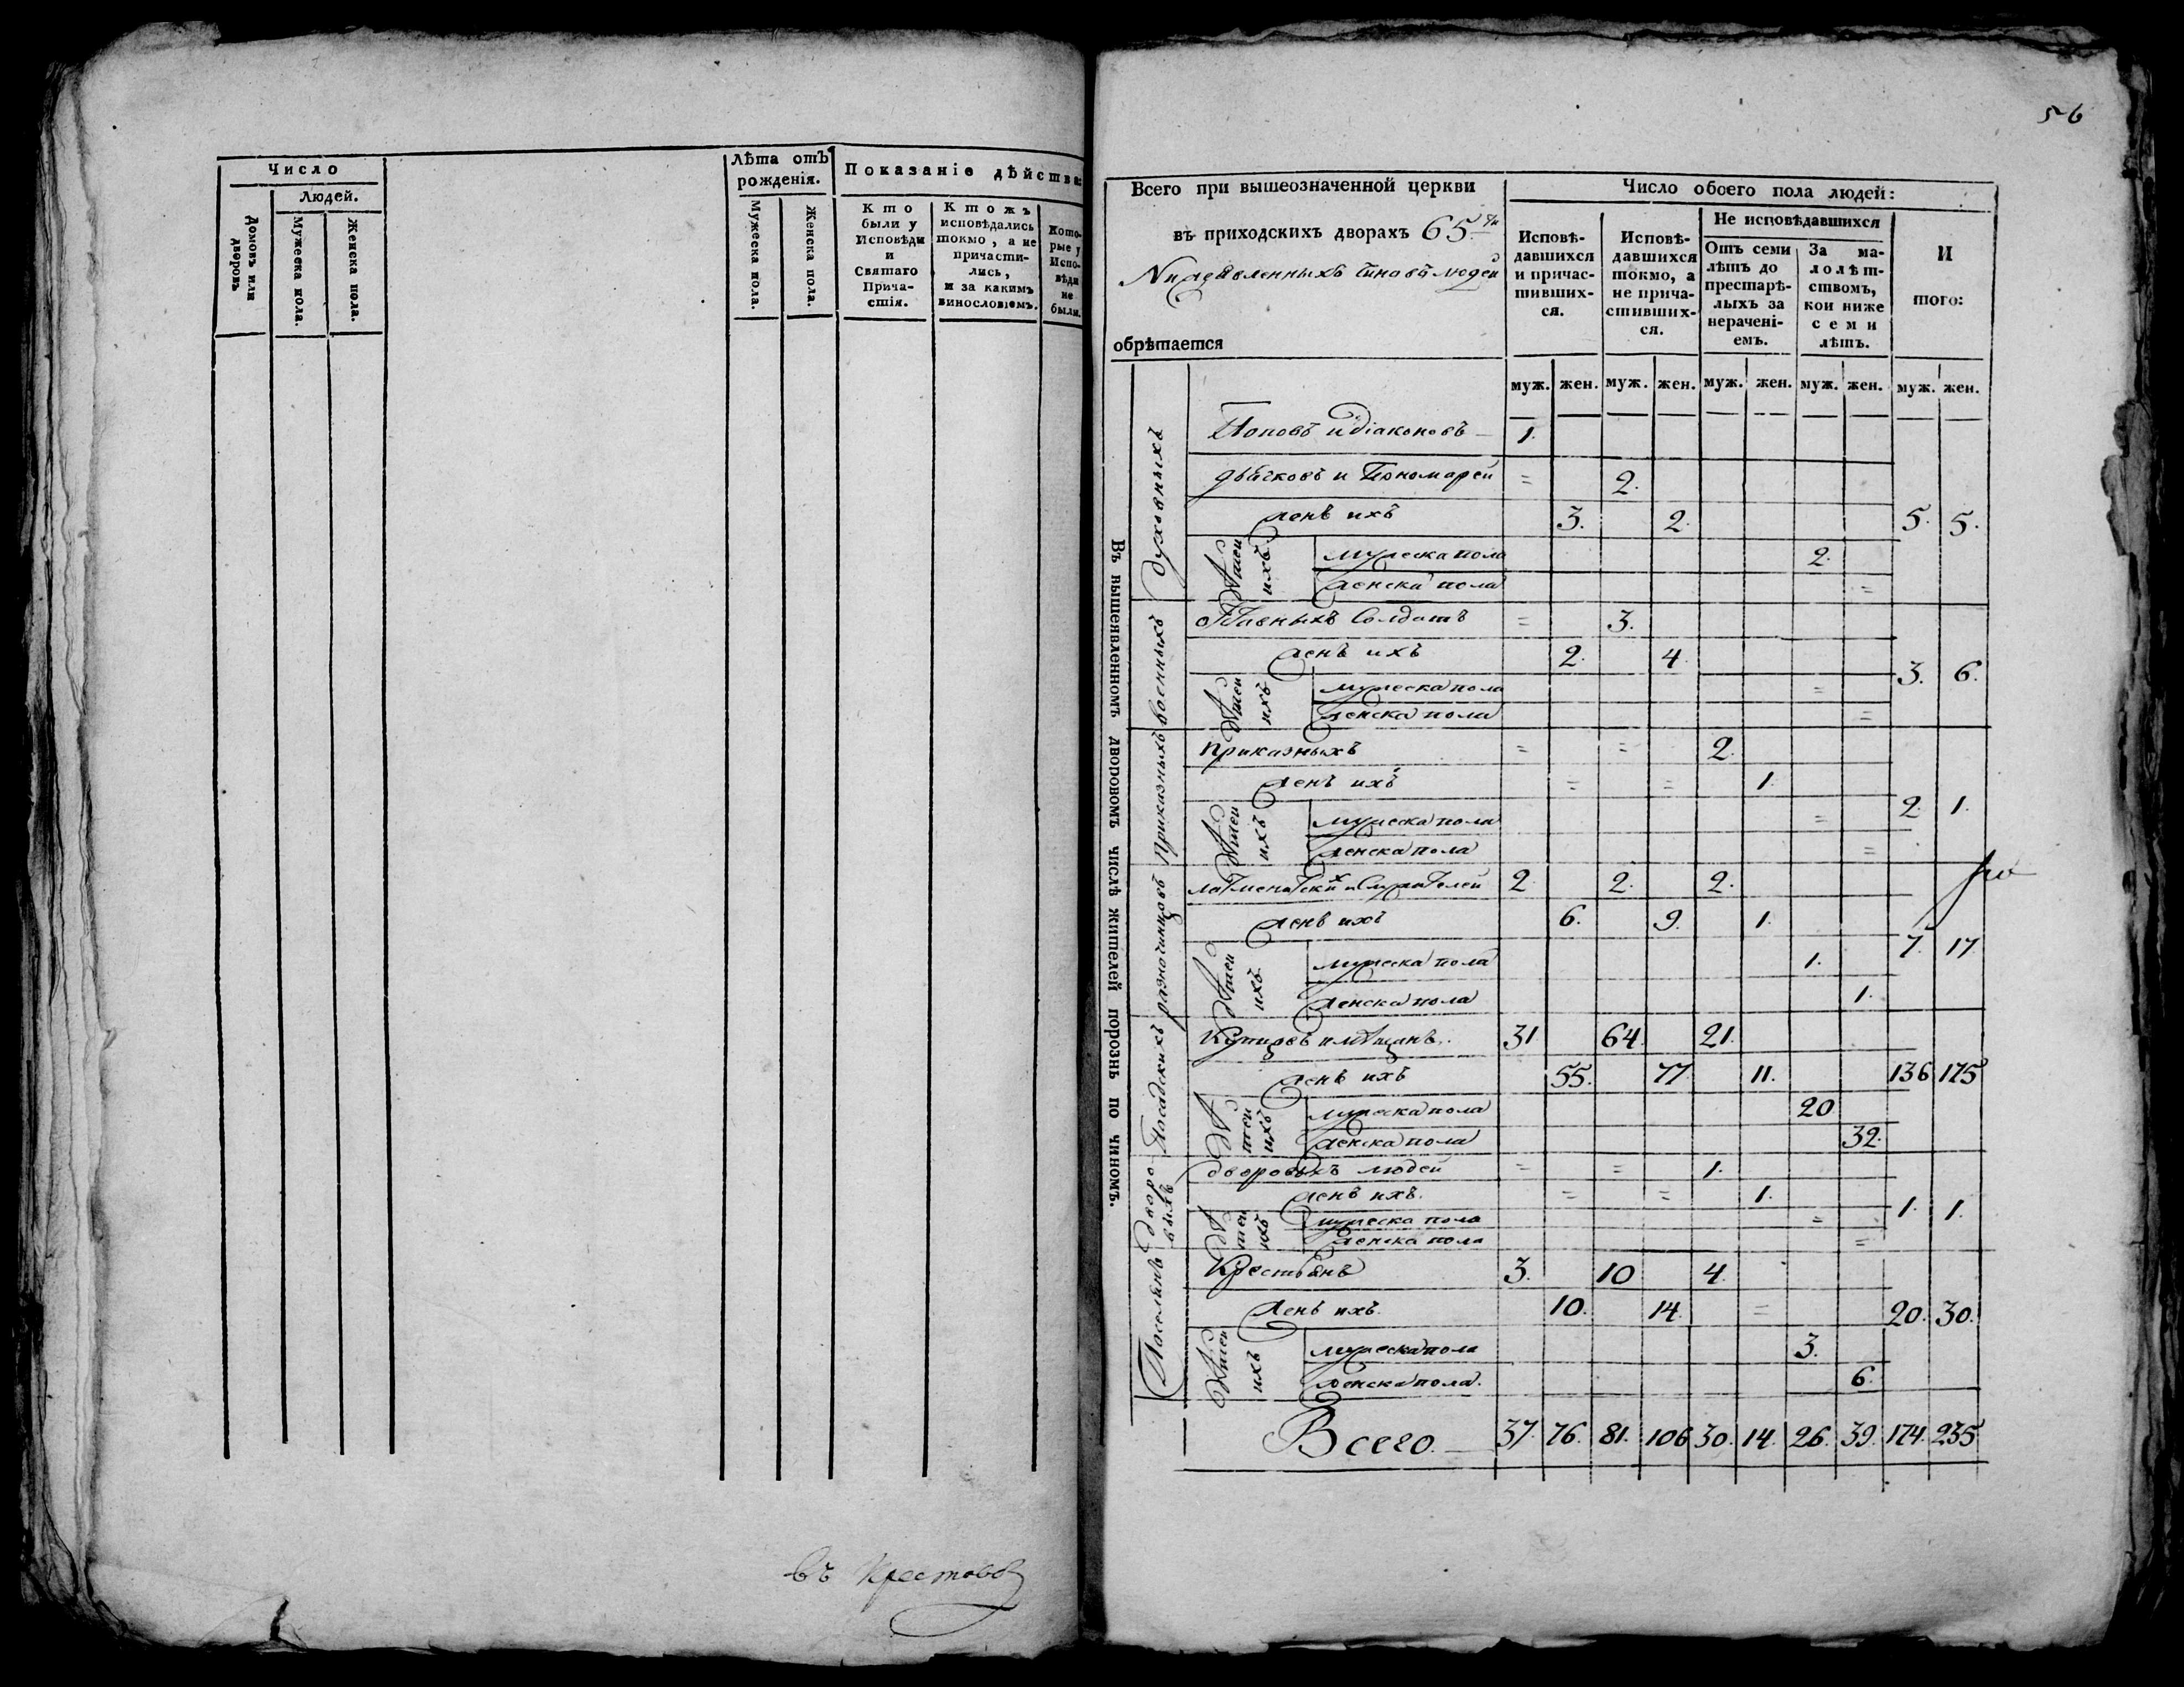 Число
Людей.
Домовъ или дворовъ
Мужеска пола.
Женска пола.
Лѣта отъ рожденія.
Мужеска пола.
Женска пола.
Показаніе дѣйства:
Кто были у Исповѣди и Святаго Причастія.
Ктожъ исповѣдались токмо, а не причастились, и за какимъ винословіемъ.
Которые у Исповѣди не были.
въ Крестовой
56
Всего при вышеозначенной церкви
въ приходскихъ дворахъ 65ти
людей
обрѣтается
Число обоего пола людей:
Исповѣдавшихся и причастившихся.
Исповѣдавшихся токмо, а не причастившихся.
Не исповѣдавшихся
Отъ семи лѣтъ до престарѣлыхъ за нераченіемъ.
За малолѣтствомъ, кои ниже семи лѣтъ.
И того:
муж. жен. муж. жен. муж. жен. муж. жен. муж. жен.
Въ вышеявленномъ дворовомъ числѣ жителей порознь по чиномъ.
Духовныхъ
Поповъ и діаконовъ 1.
дьячковъ и Пономарей = 2.
женъ ихъ 3. 2. 5. 5.
дѣтей ихъ
мужеска пола 2.
женска пола =
Военныхъ
Солдатъ = 3.
женъ ихъ 2. 4. 3. 6.
дѣтей ихъ
мужеска пола =
женска пола =
Приказныхъ
Приказныхъ = = 2.
женъ ихъ = = 1.
дѣтей ихъ 2. 1.
мужеска пола =
женска пола =
разночинцовъ
2. 2. 2.
женъ ихъ 6. 9. 1. 7. 17
дѣтей ихъ
мужеска пола 1.
женска пола 1.
Посадскихъ
Купцовъ и мѣщанъ. 31 64. 21.
женъ ихъ 55. 77 11. 136 175
дѣтей ихъ
мужеска пола 20
женска пола 32.
дворовыхъ
дворовыхъ людей = = 1.
женъ ихъ. = = 1. 1. 1.
дѣтей ихъ
мужеска пола =
женска пола =
Поселянъ
Крестьянъ 3. 10 4.
женъ ихъ. 10. 14. = 20. 30.
дѣтей ихъ
мужеска пола 3.
женска пола. 6.
Всего. 37. 76. 81. 106 30. 14. 26. 39. 174. 235